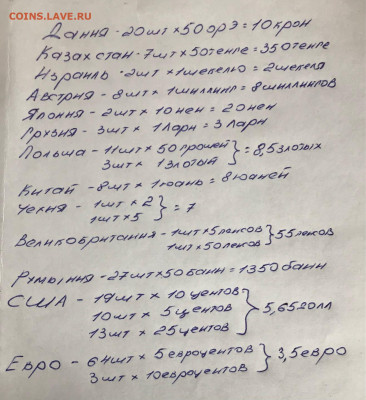 COINS.LAVE.RU
Дания - 20шт x 50 орэ = 10крон
Казахстан - 7шт x 50тенге = 350тенге
Израиль - 2шт x 1шекелю = 2шекеля
Австрия - 8шт x 1шиллинг = 8шиллингов
Япония - 2шт x 10иен = 20иен
Грузия - 3шт x 1лари = 3лари
Польша - 11шт x 50грошей
3шт x 1злотый } = 8,5злотых
Китай - 8шт x 1юань = 8юаней
Чехия - 1шт x 2
1шт x 5 } = 7
Великобритания - 1шт x 5пенсов
1шт x 50пенсов } 55пенсов
Румыния - 27шт x 50бани = 1350бани
США - 19шт x 10центов
10шт x 5центов
13шт x 25центов } 5,65долл
Евро - 64шт x 5евроцентов
3шт x 10евроцентов } 3,5евро